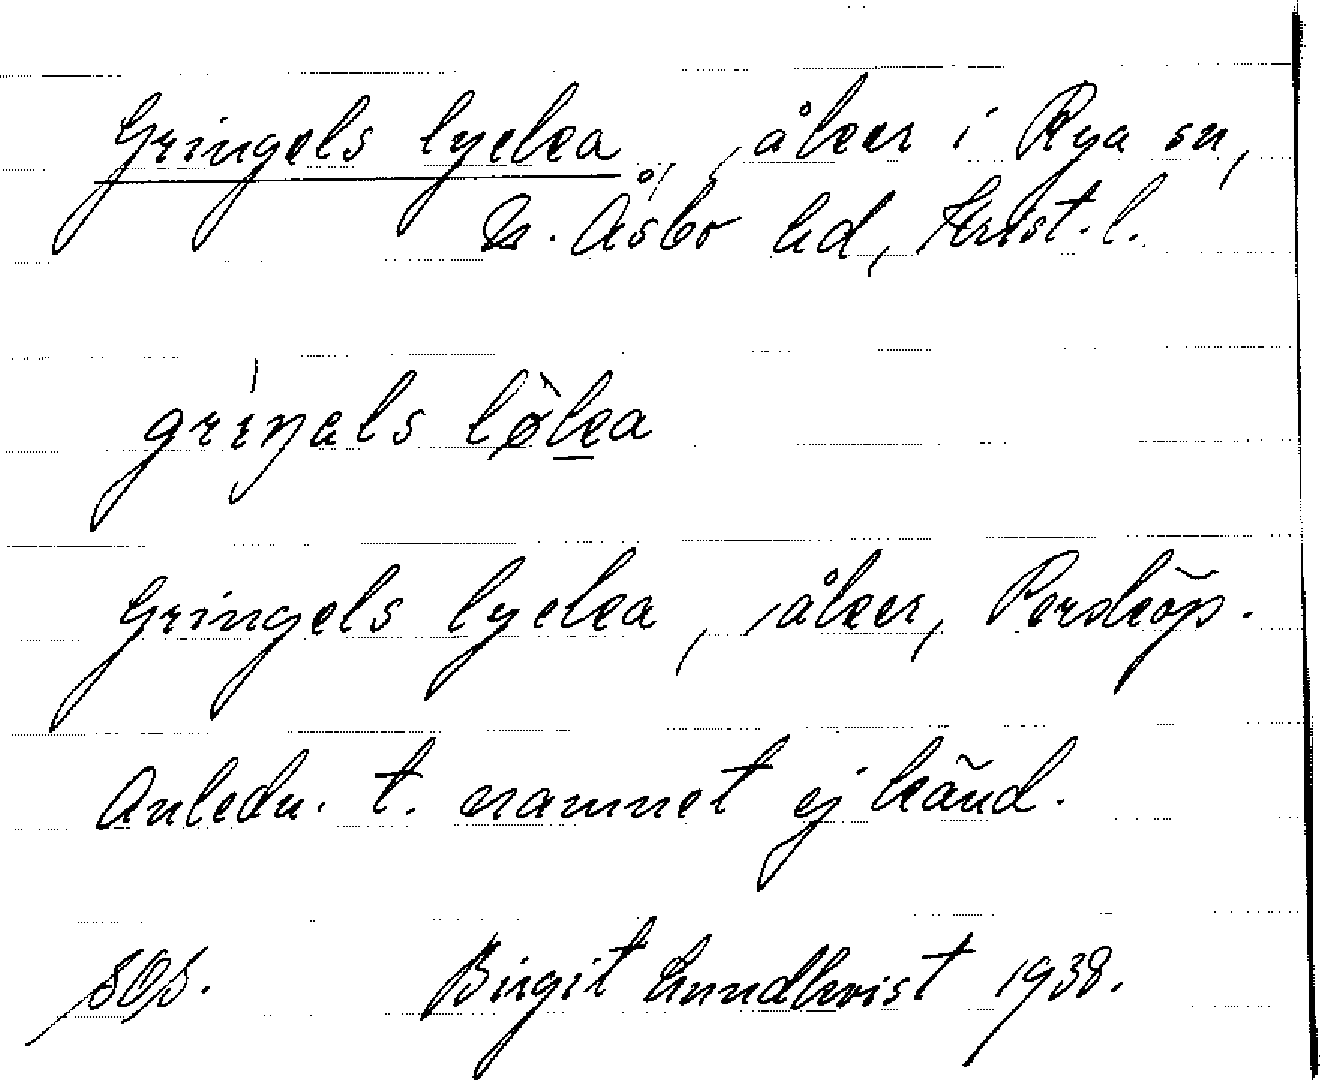 Gringels lycka, åker i Rya sn,
N. Åsbo hd, Krist. l.
griŋals lø̀ka
Gringels lycka, åker, Persköp.
Anledn. t. namnet ej känd.
SOS. Birgit Lundkvist 1938.